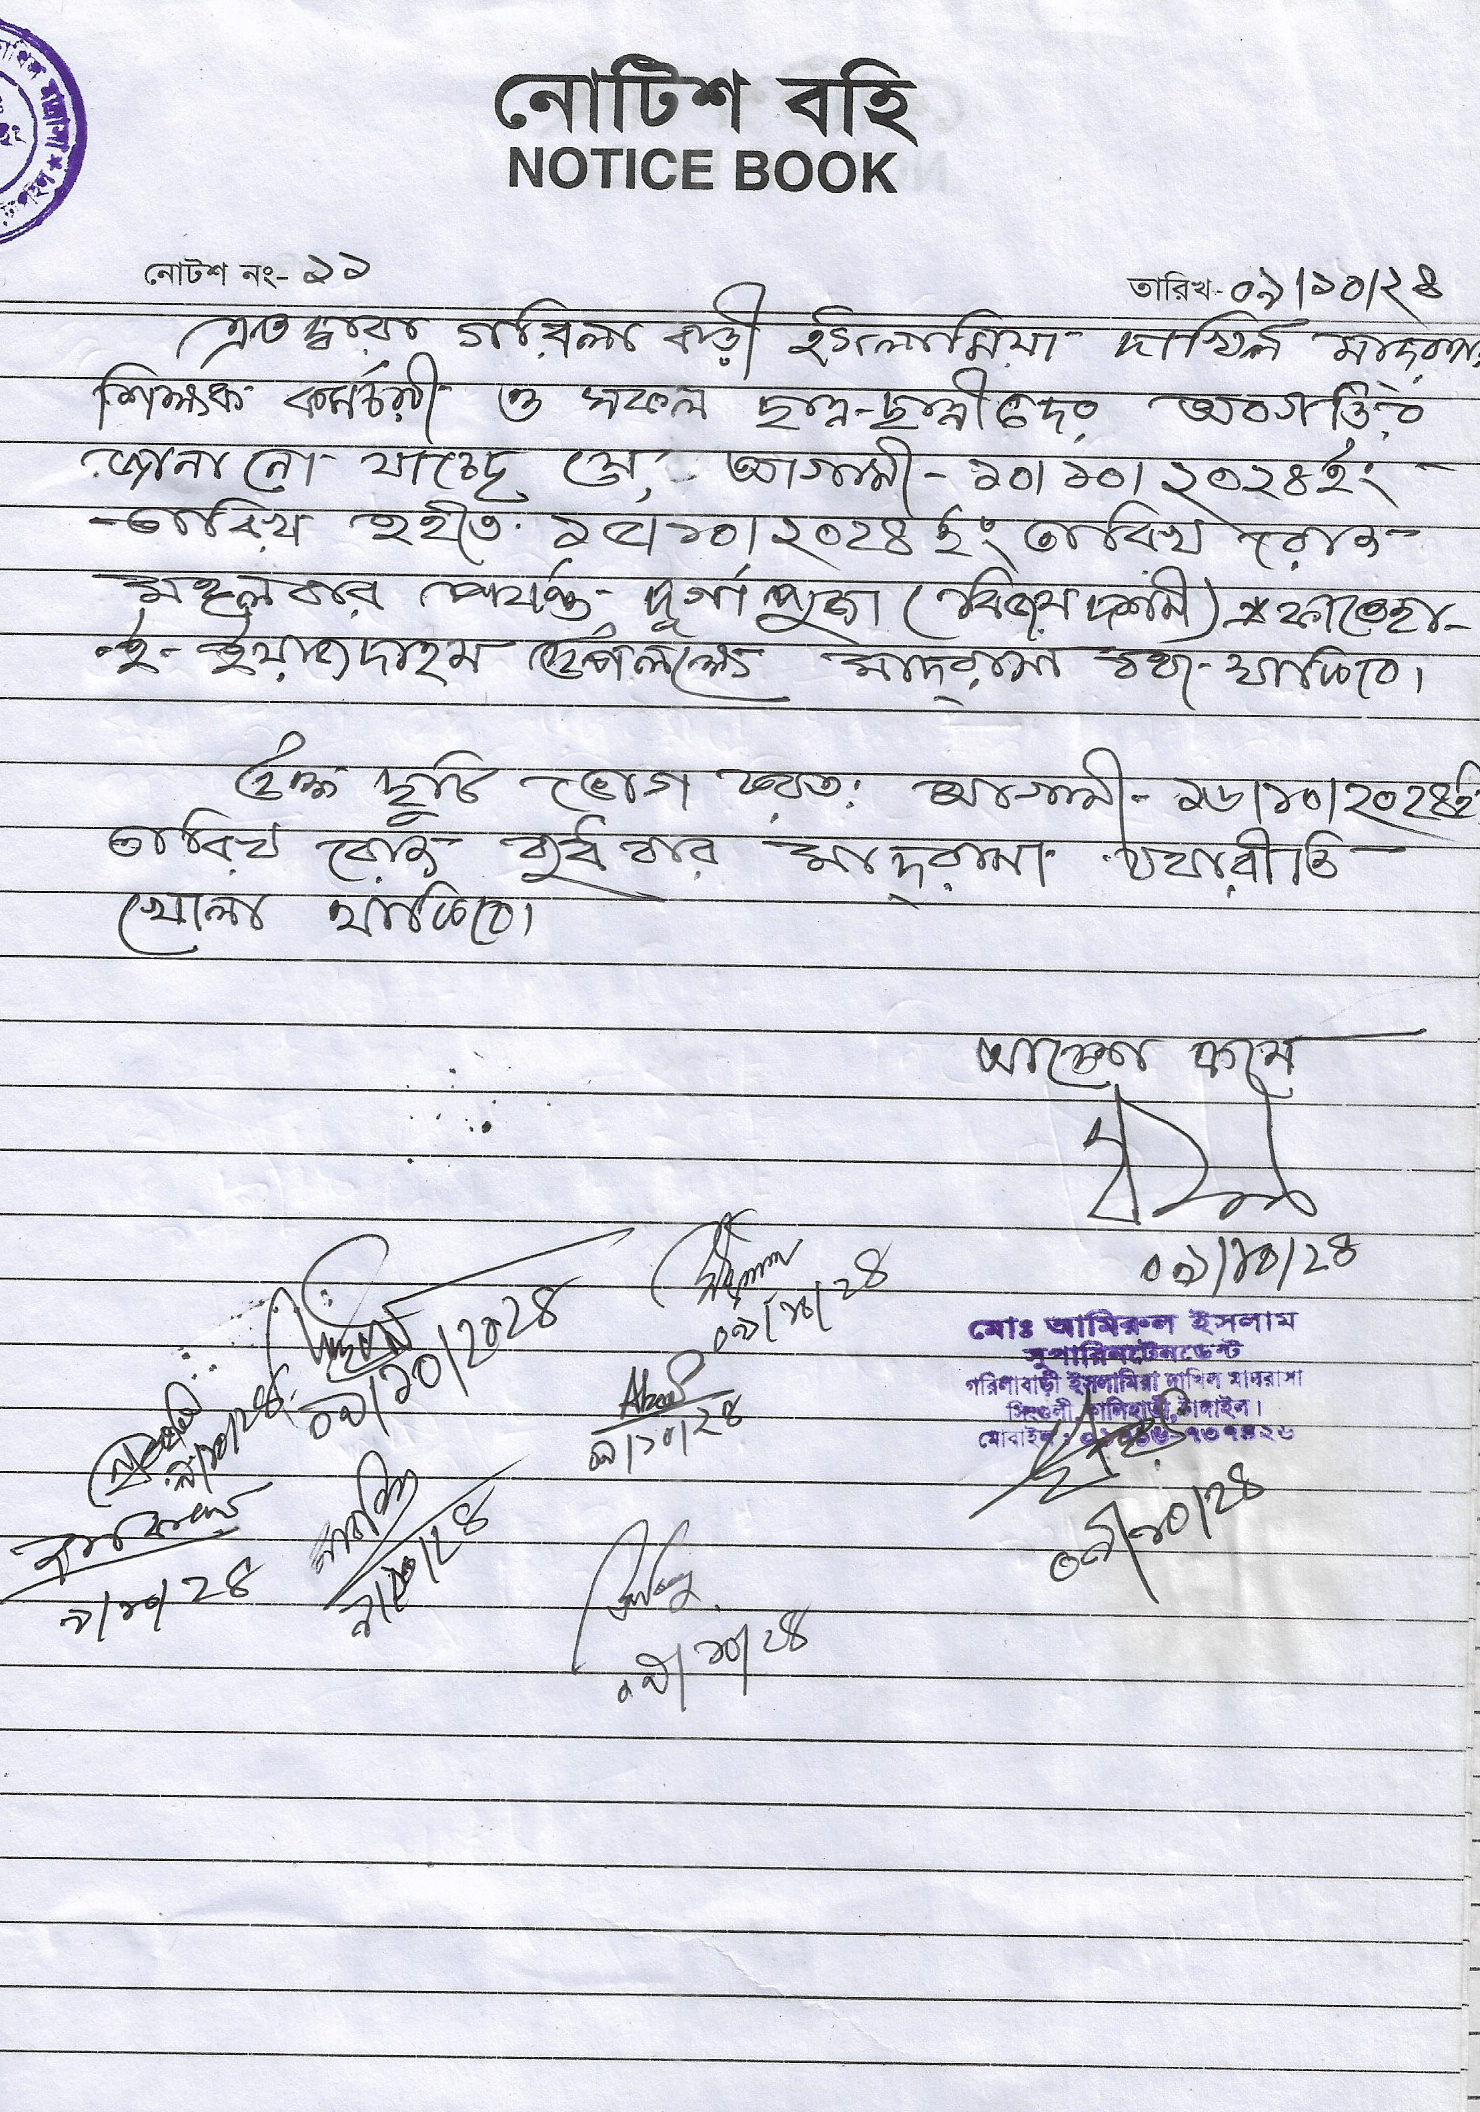 নোটিশ বহি
NOTICE BOOK
নোটশ নং- ১১
তারিখ- ০৯/১০/২৪
এতদ্বারা গরিলা বাড়ী ইসলামিয়া দাখিল মাদ্রাসার
শিক্ষক কর্মচারী ও সকল ছাত্র-ছাত্রীদের অবগতির
জানানো যাচ্ছে যে, আগামী- ১০/১০/২০২৪ইং
তারিখ হইতে ১৫/১০/২০২৪ ইং তারিখ রোজ
মঙ্গলবার পর্যন্ত দূর্গা পুজা (বিজয় দশমী) ফাতেহা-
ই- ইয়াজদাহম উপলক্ষ্যে মাদ্রাসা বন্ধ থাকিবে।
উক্ত ছুটি ভোগ আগামী- ১৬/১০/২০২৪ইং
তারিখ রোজ বুধবার মাদ্রাসা যথারীতি
খোলা থাকিবে।
আদেশ ক্রমে
০৯/১০/২৪
মোঃ আমিরুল ইসলাম
সুপারিনটেনডেন্ট
গরিলাবাড়ী ইসলামিয়া দাখিল মাদরাসা
কালিহাতী, টাঙ্গাইল।
মোবাইল:
০৯/১০/২০২৪
০৯/১০/২৪
৯/১০/২৪
০৯/১০/২৪
৯/১০/২৪
৯/১০/২৪
০৯/১০/২৪
০৯/১০/২৪